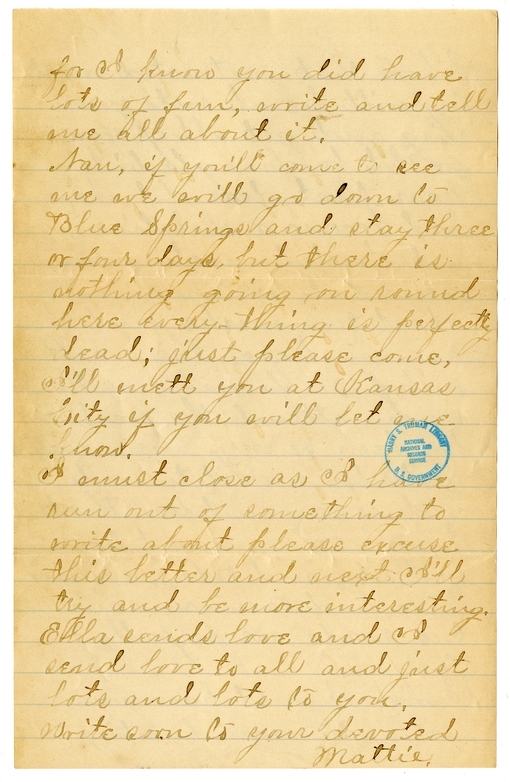 for I know you did have
lots of fun, write and tell
me all about it.
Nan, if you'll come to see
me we will go down to
Blue Springs and stay three
or four days, but there is
nothing going on round
here every-thing is perfectly
dead; just please come,
I'll mett you at Kansas
City if you will let me
know.
I must close as I have
run out of something to
write about please excuse
this better and next I'll
try and be more interesting.
Ella sends love and I
send love to all and just
lots and lots to you.
Write soon to your devoted
Mattie.
HARRY S. TRUMAN LIBRARY
NATIONAL
ARCHIVES AND
RECORDS
SERVICE
U. S. GOVERNMENT